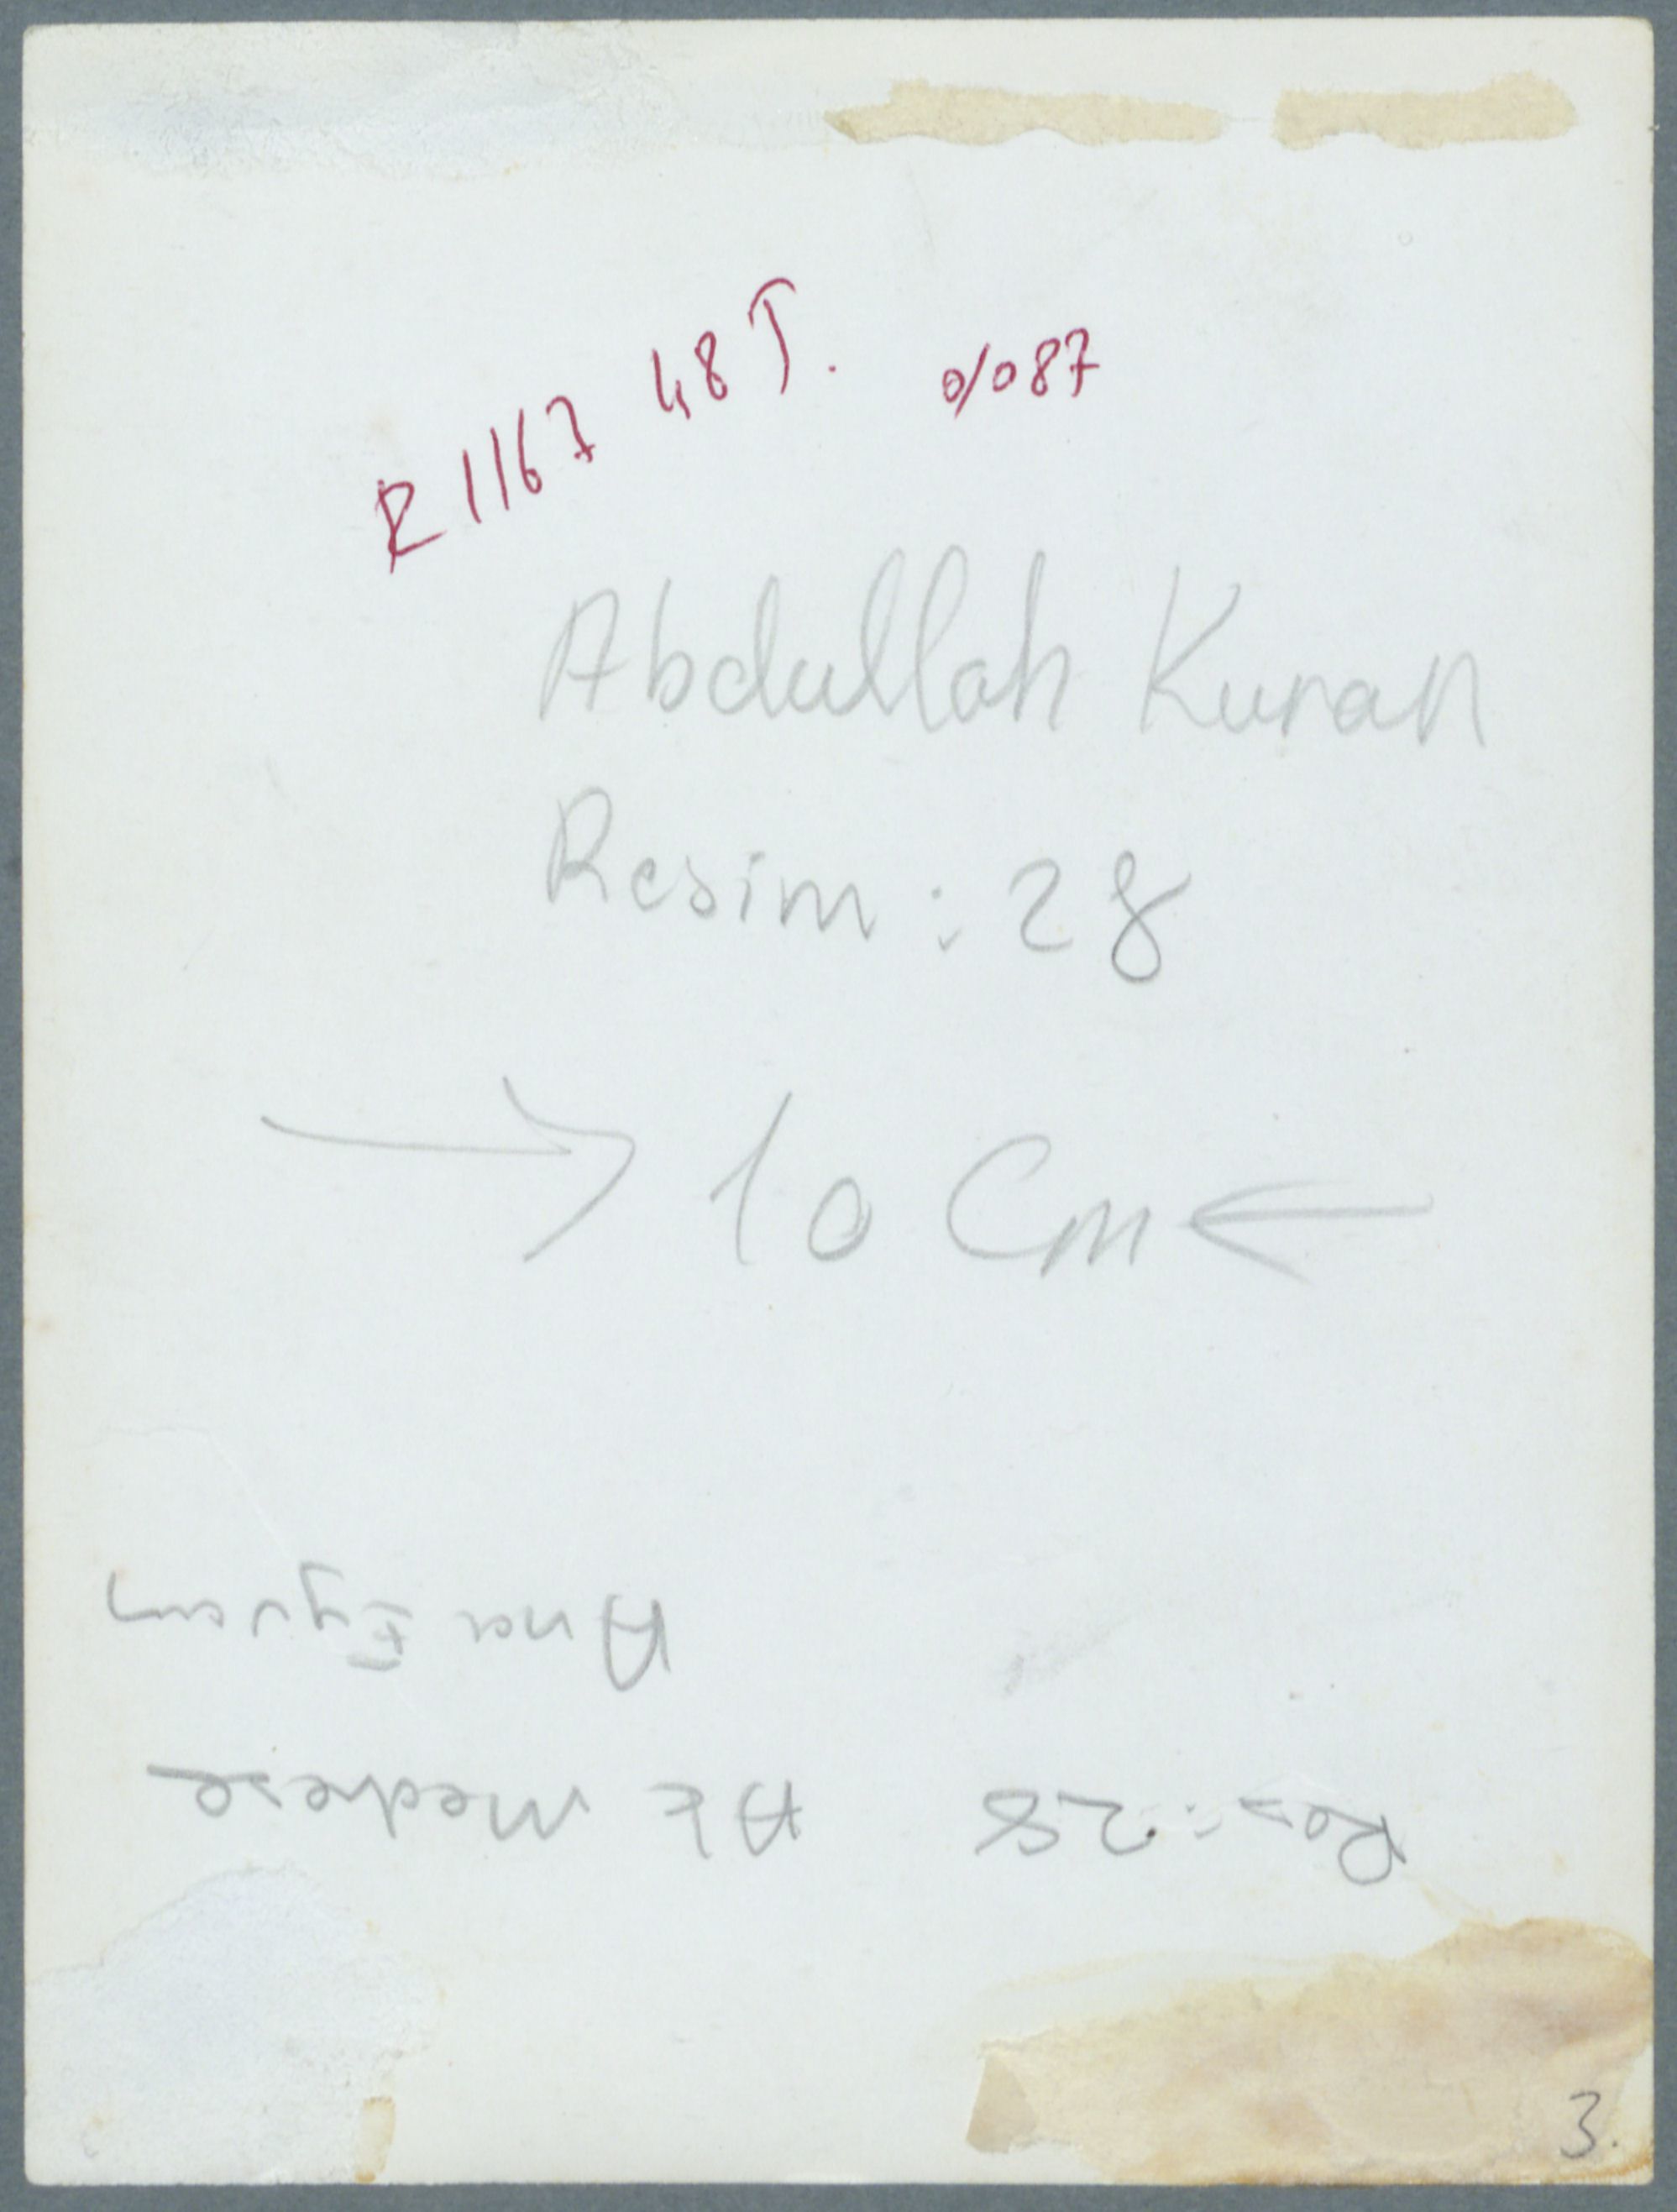 R 1167 48 T. %087
Abdullah Kuran
Resim : 28
→ 10 Cm ←
Res : 28 Ak Medrese
Ana Eyvan
3.